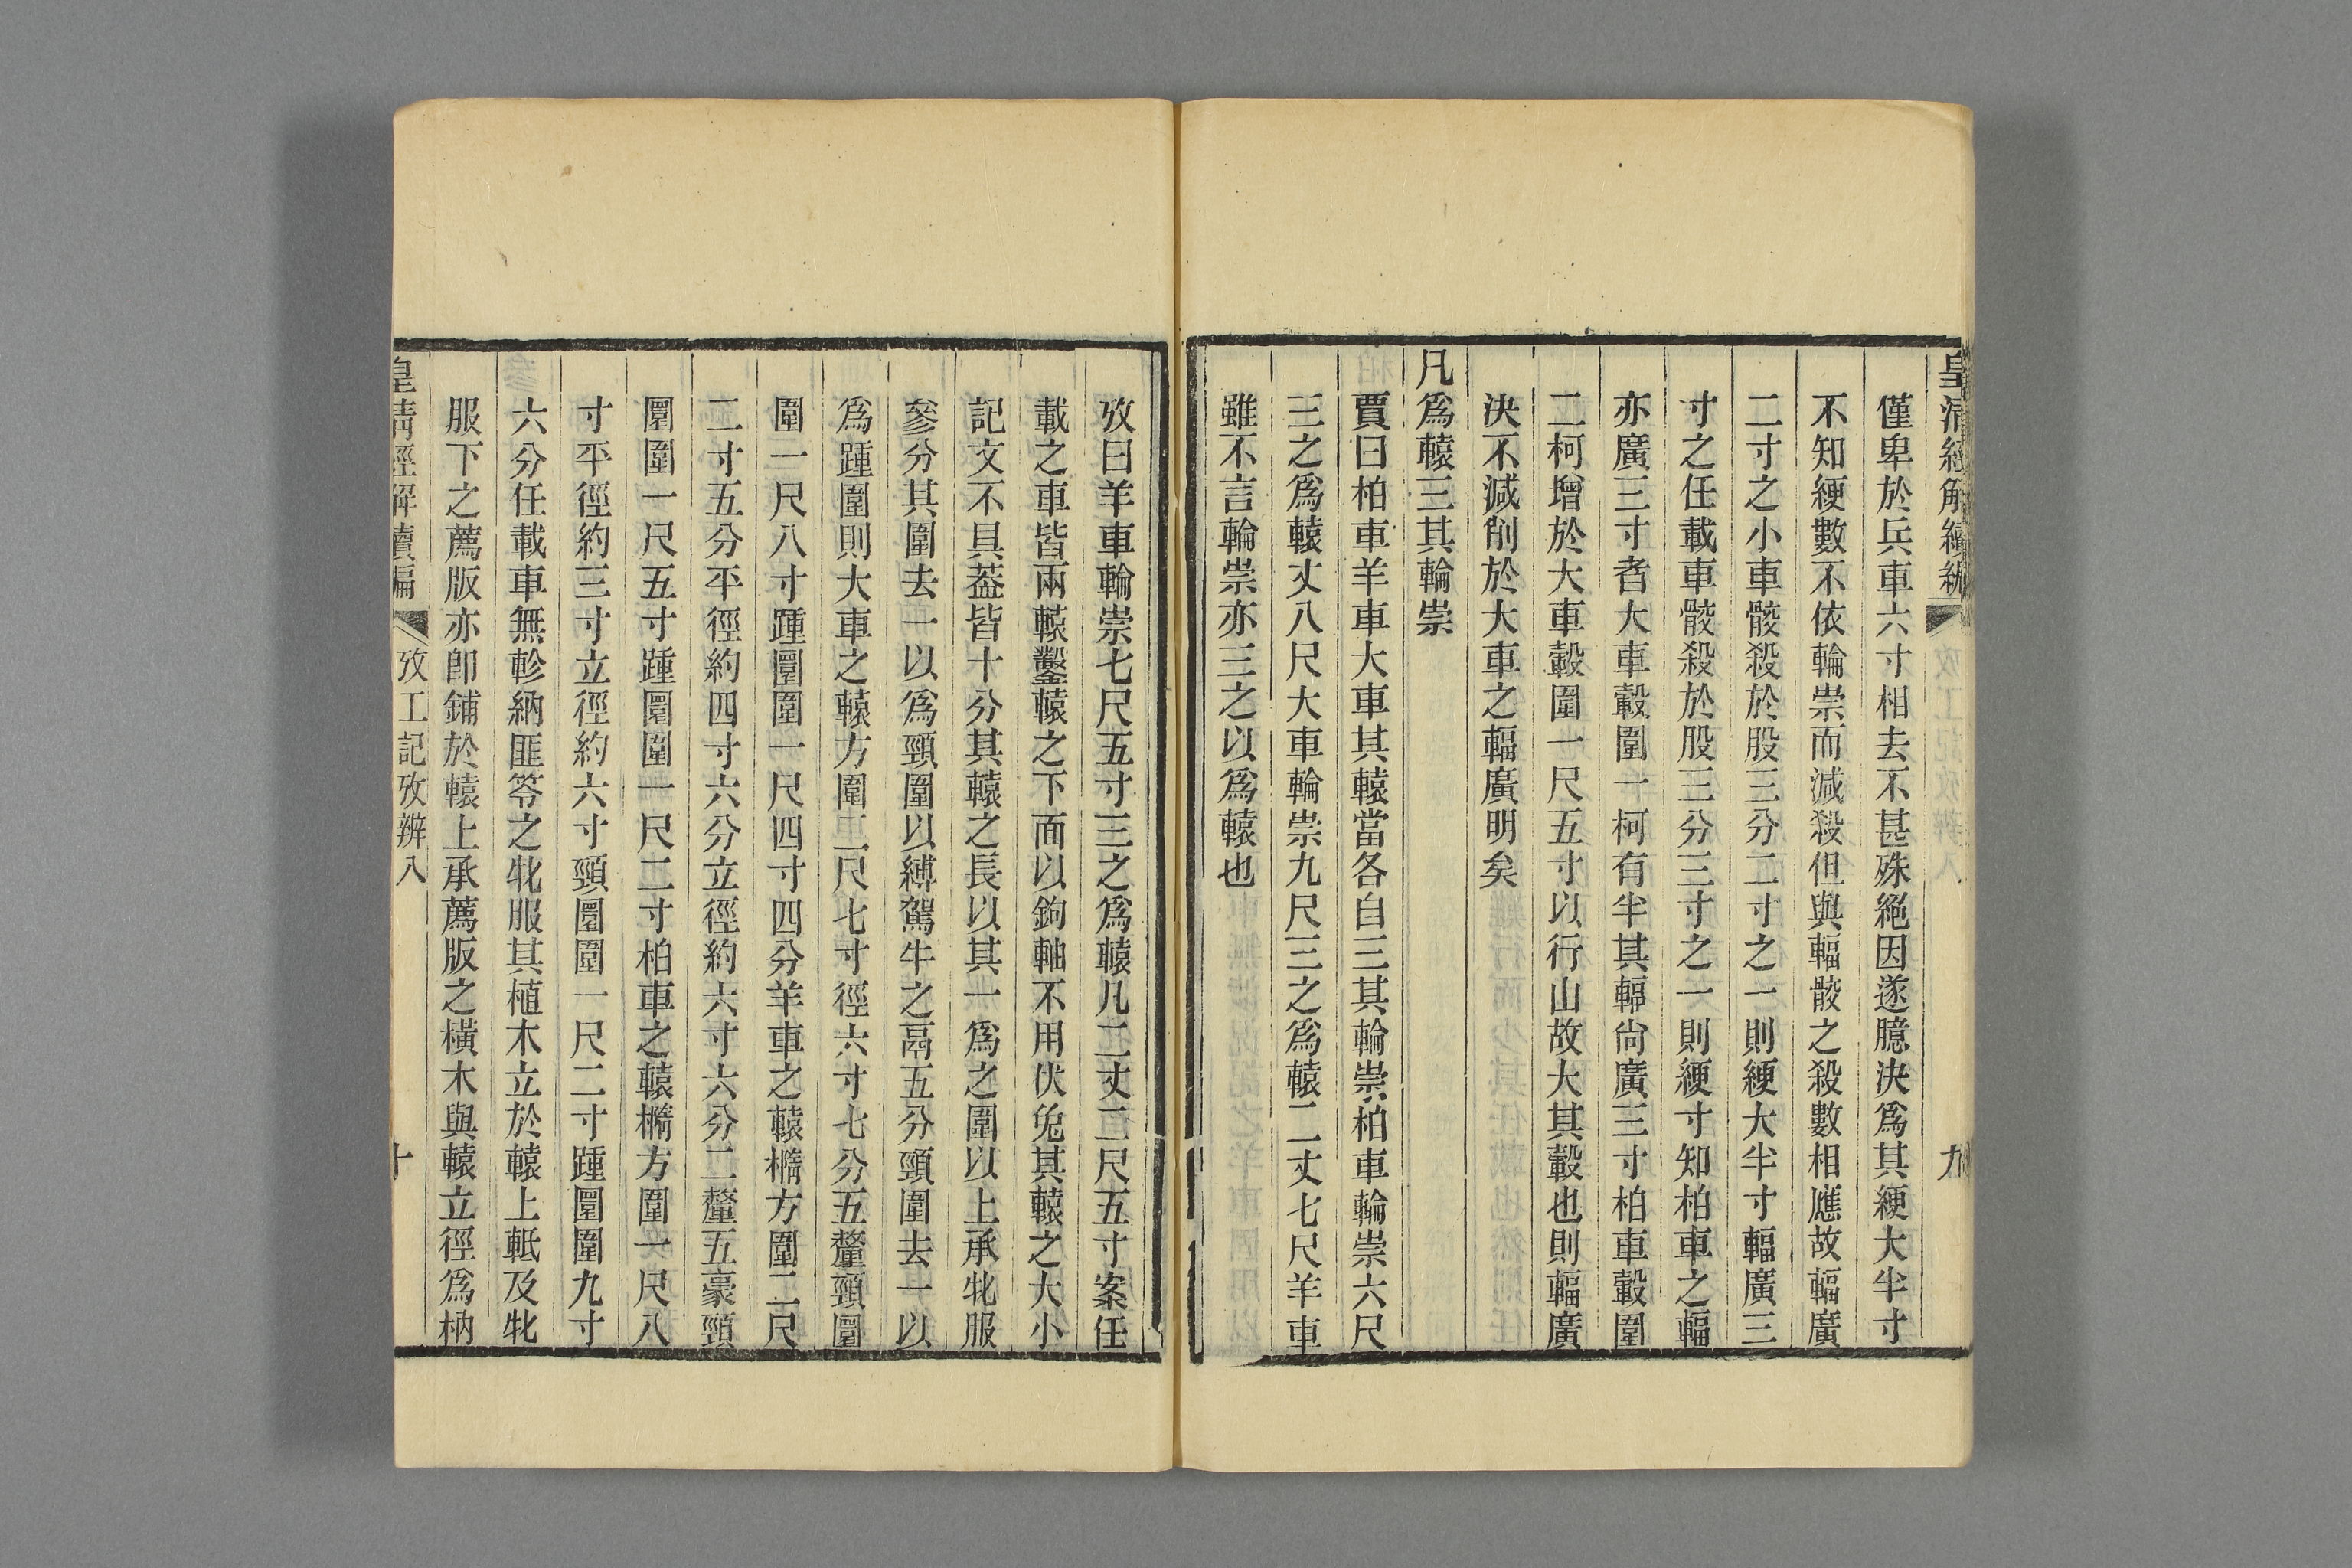 皇清經解續編
九
僅卑於兵車六寸相去不甚殊絕因遂臆決爲其綆大半寸
不知綆數不依輪崇而減殺但與輻骹之殺數相應故輻廣
二寸之小車骹殺於股三分二寸之一則綆大半寸輻廣三
寸之任載車骹殺於股三分三寸之一則綆寸知柏車之輻
亦廣三寸者大車轂圍一柯有半其輻尙廣三寸柏車轂圍
二柯增於大車轂圍一尺五寸以行山故大其轂也則輻廣
決不減削於大車之輻廣明矣
凡爲轅三其輪崇
賈曰柏車羊車大車其轅當各自三其輪崇柏車輪崇六尺
三之爲轅丈八尺大車輪崇九尺三之爲轅二丈七尺羊車
雖不言輪崇亦三之以爲轅也
攷曰羊車輪崇七尺五寸三之爲轅凡二丈二尺五寸案任
載之車皆兩轅鑿轅之下面以鉤軸不用伏兔其轅之大小
記文不具葢皆十分其轅之長以其一爲之圍以上承牝服
參分其圍去一以爲頸圍以縛駕牛之鬲五分頸圍去一以
爲踵圍則大車之轅方圍二尺七寸徑六寸七分五釐頸圜
圍一尺八寸踵圜圍一尺四寸四分羊車之轅橢方圍二尺
二寸五分平徑約四寸六分立徑約六寸六分二釐五豪頸
圜圍一尺五寸踵圜圍一尺二寸柏車之轅橢方圍一尺八
寸平徑約三寸立徑約六寸頸圜圍一尺二寸踵圜圍九寸
六分任載車無軫納匪笭之牝服其植木立於轅上軧及牝
服下之薦版亦卽鋪於轅上承薦版之橫木與轅立徑爲枘
皇清經解續編
攷工記攷辨八
十